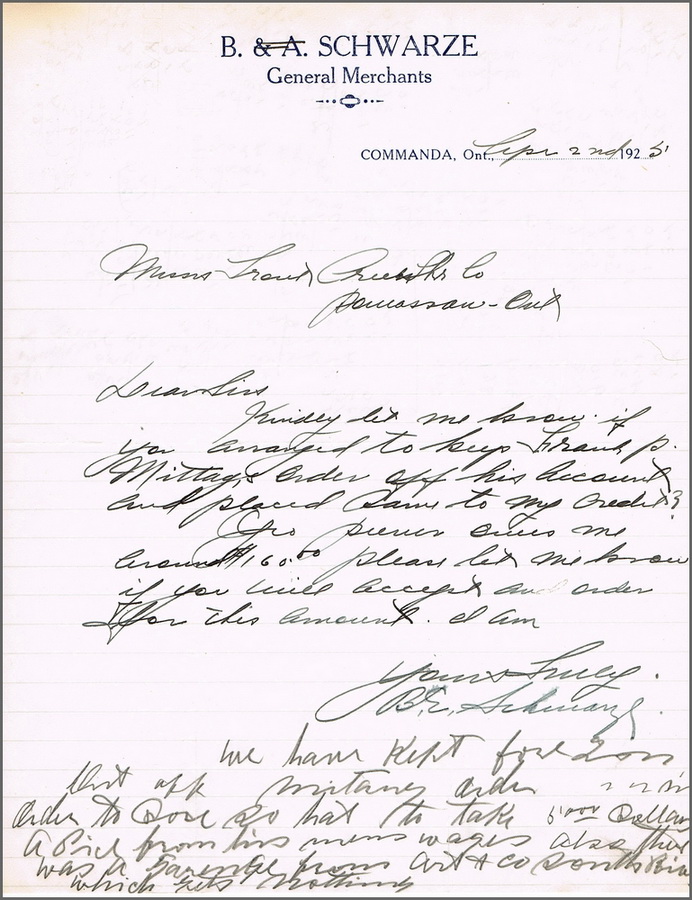 B. & A. SCHWARZE
General Merchants
COMMANDA, Ont., Sept 2nd 1925
Messrs Co
Ont
Dear Sirs
Kindly let me know if
you arranged to keep Frank P.
Mittags order off his account
and placed same to my credit?
owes me
around $160.00 please let me know
if you will accept an order
for this amount. I am
Yours Truly.
Schwarze
we have Kept
off order
order to had to take Dollar
A from his mens wages also ther
was a from & Co South
which gets nothing